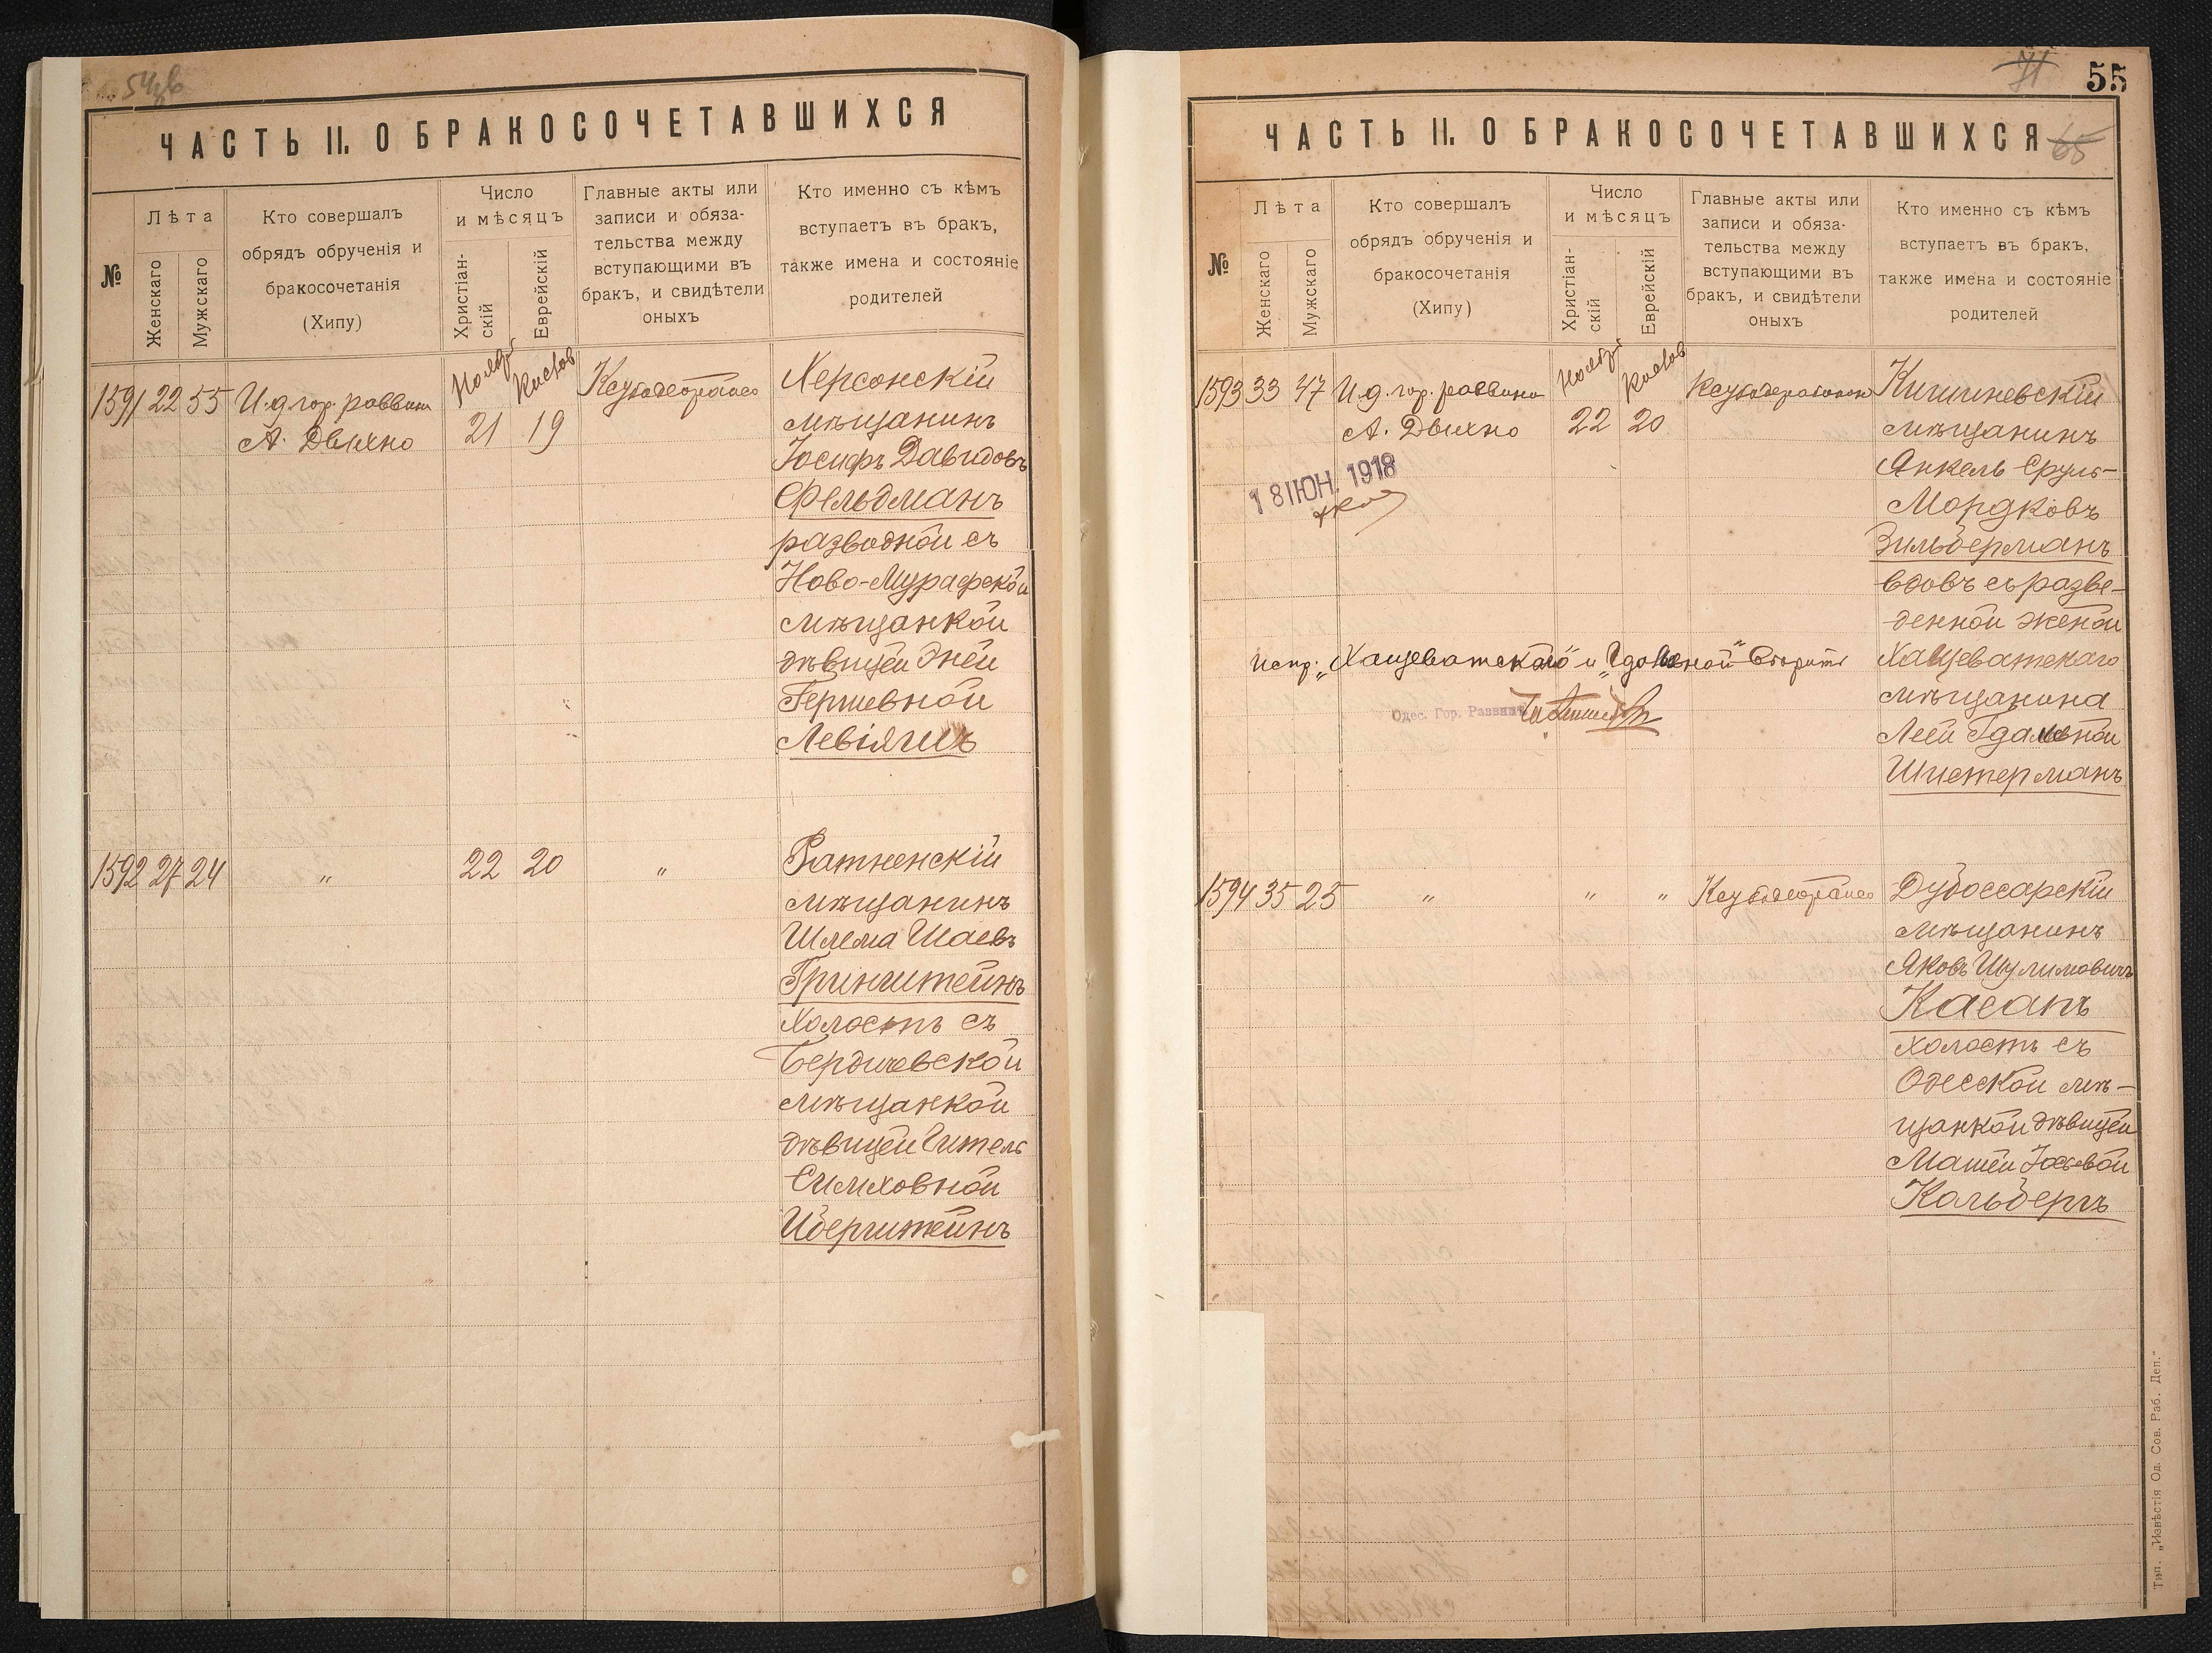 ЧАСТЬ II. О БРАКОСОЧЕТАВШИХСЯ
№
Лѣта
Женскаго
Мужскаго
Кто совершалъ
обрядъ обрученія и
бракосочетанія
(Хипу)
Число
и мѣсяцъ
Христіан-
скій
Еврейскій
Главные акты или
записи и обяза-
тельства между
вступающими въ
бракъ, и свидѣтели
оныхъ
Кто именно съ кѣмъ
вступаетъ въ бракъ,
также имена и состояніе
родителей
1591 22 55 И.д. гор. раввина
А. Двихно
Ноябр
21
Кислов
19
Херсонскій
мѣщанинъ
Іосифъ Давидовъ
Фельдманъ
разводной съ
Ново-Мурафской
мѣщанкой
дѣвицей Эней
Гершевной
Левіячъ
1592 27 24 " 22 20 "
Ратненскій
мѣщанинъ
Шлема Шаевъ
Гринштейнъ
холостъ съ
Бердичевской
мѣщанкой
дѣвицей Гитель
Симховной
Иберштейнъ
55
71
65
ЧАСТЬ II. О БРАКОСОЧЕТАВШИХСЯ
№
Лѣта
Женскаго
Мужскаго
Кто совершалъ
обрядъ обрученія и
бракосочетанія
(Хипу)
Число
и мѣсяцъ
Христіан-
скій
Еврейскій
Главные акты или
записи и обяза-
тельства между
вступающими въ
бракъ, и свидѣтели
оныхъ
Кто именно съ кѣмъ
вступаетъ въ бракъ,
также имена и состояніе
родителей
1593 33 47 И.д. гор. раввина
А. Двихно
Ноябр
22
Кислов
20
18 ІЮН. 1918
Кишиневскій
мѣщанинъ
Янкель Сруль-
Мордковъ
Зильберманъ
вдовъ съ разве-
денной женой
Хащеватскаго
мѣщанина
Леей Гдальевной
Шистерманъ
испр: „Хащеватскаго" и „Гдальевной"
Одес. Гор. Раввинъ
1594 35 25 " " "
Дубоссарскій
мѣщанинъ
Яковъ Шулимовичъ
Касапъ
холостъ съ
Одесской мѣ-
щанкой дѣвицей
Машей
Кольбергъ
Тип. „Извѣстія Од. Сов. Раб. Деп."